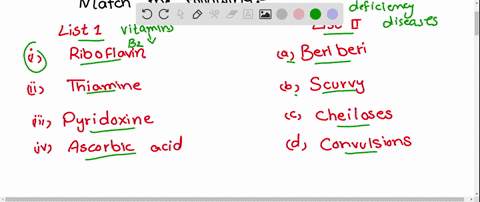 Match the following
deficiency
List 1 vitamins List II diseases
B2
(i) Riboflavin (a) Beriberi
(ii) Thiamine (b) Scurvy
(iii) Pyridoxine (c) Cheiloses
(iv) Ascorbic acid (d) Convulsions